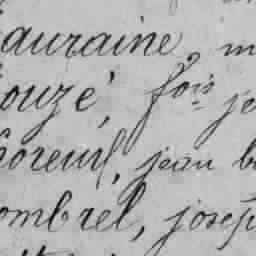 auraine, m
ouzé, fois je
horeuil, jean b
ombrel, josep